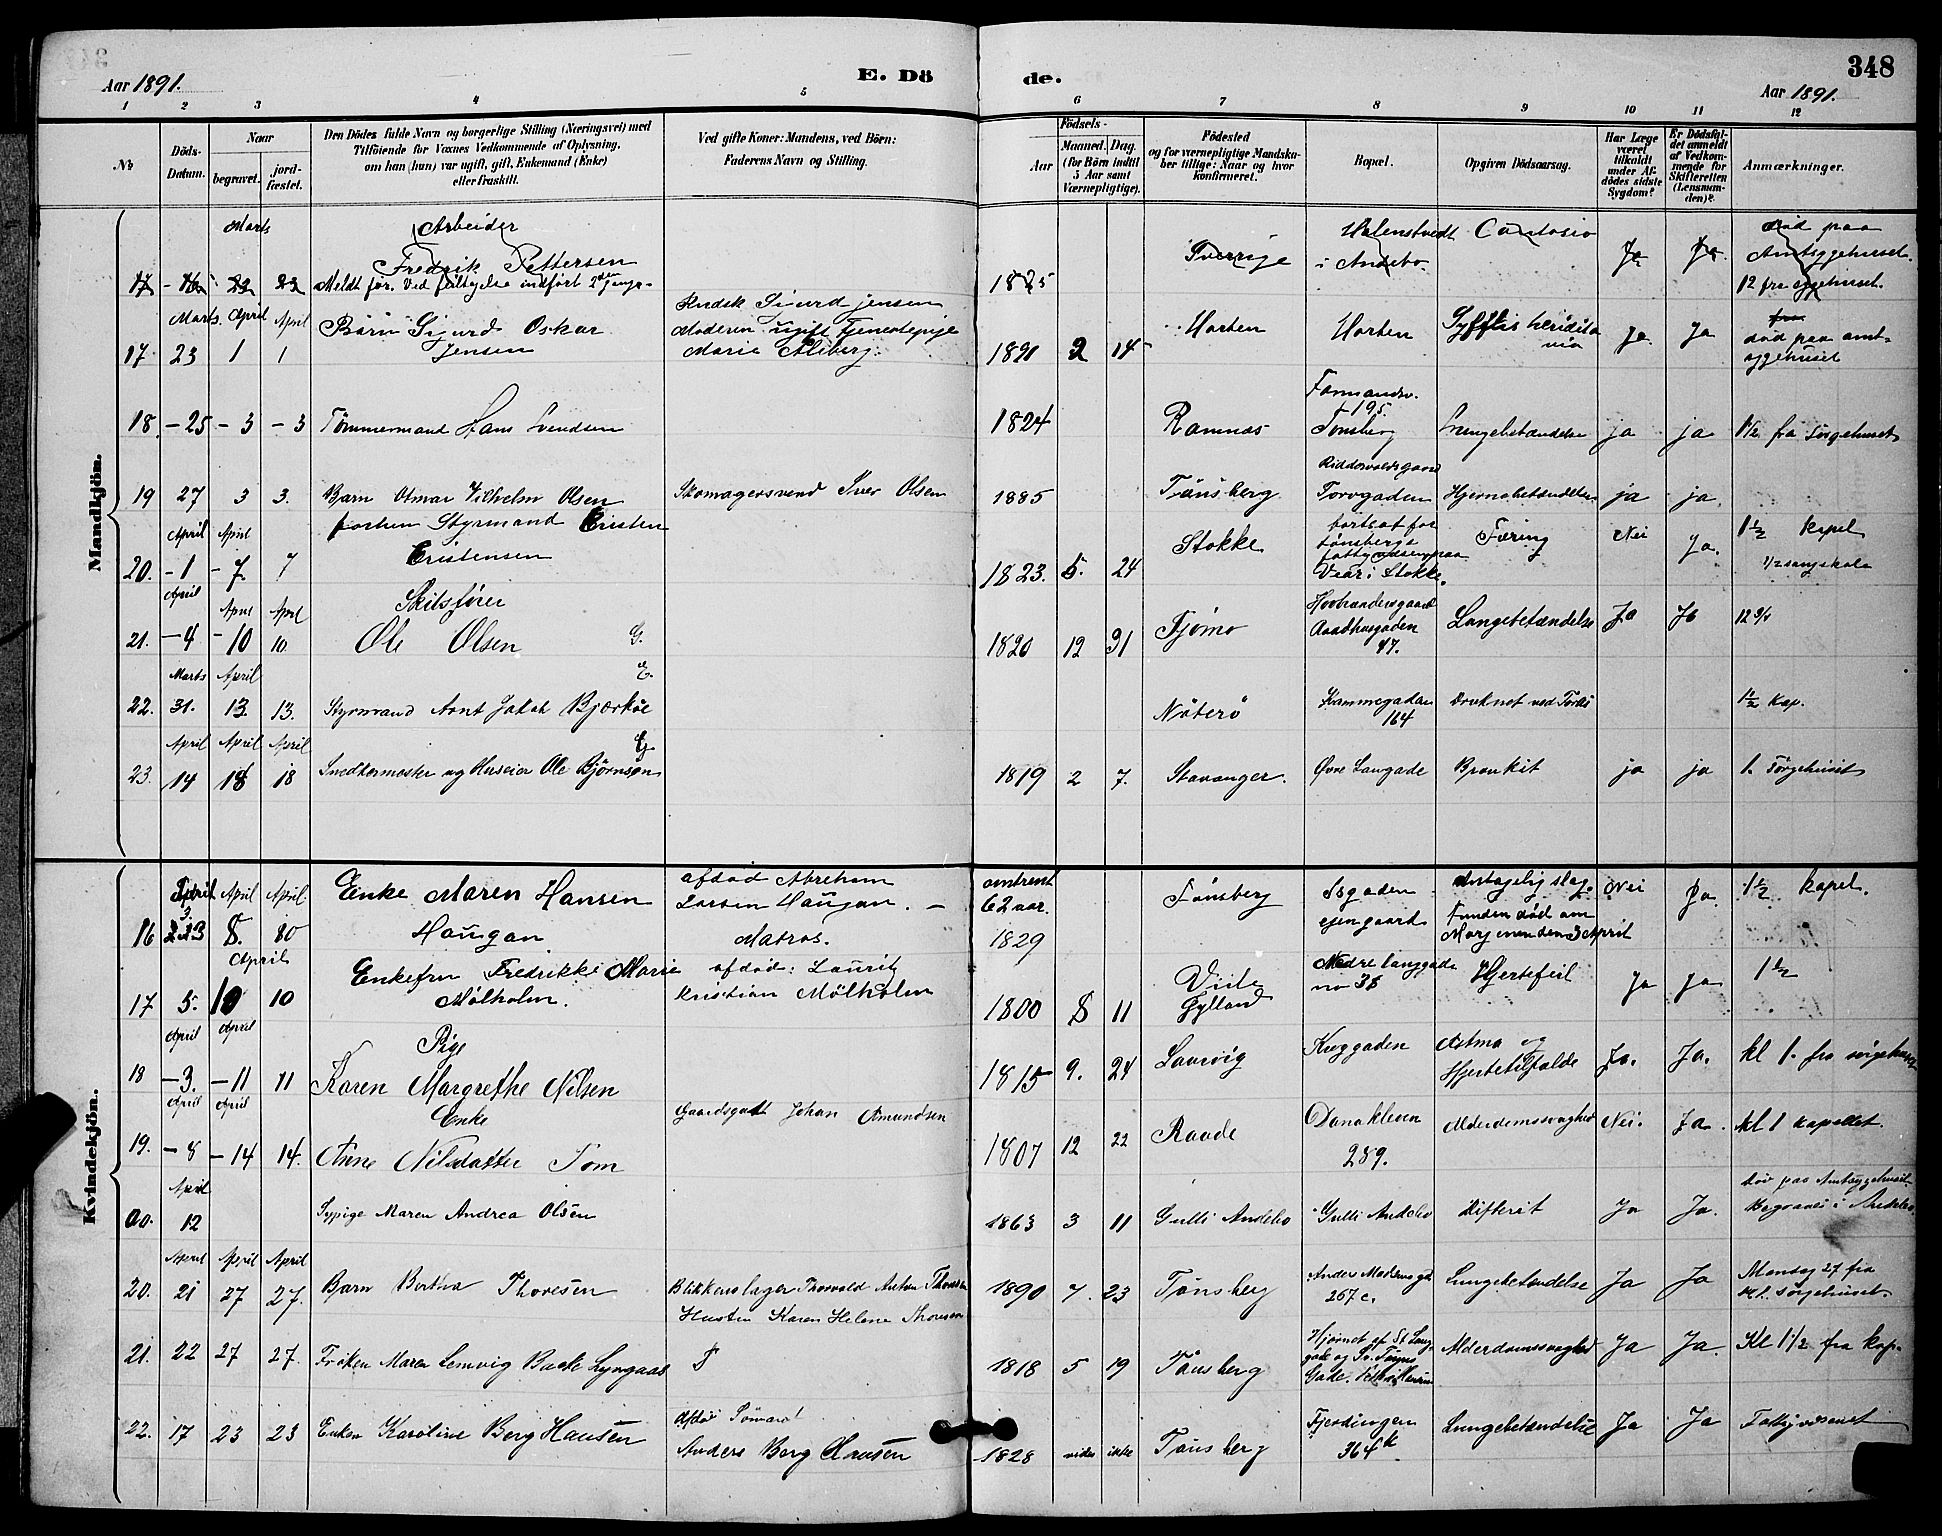 348
Aar 1891.
E. Dö
de.
Aar 1891.
1 2 3 4 5 6 7 8 9 10 11 12
No
Döds-
Datum.
Naar
begravet.
jord-
fæstet.
Den Dödes fulde Navn og borgerlige Stilling (Næringsvei) med
Tilföiende for Voxnes Vedkommende af Oplysning,
om han (hun) var ugift, gift, Enkemand (Enke)
eller fraskilt.
Ved gifte Koner: Mandens, ved Börn:
Faderens Navn og Stilling.
Födsels-
Aar
Maaned.
Dag.
(for Börn indtil
5 Aar samt
Værnepligtige).
Födested
og for værnepligtige Mandska-
ber tillige: Naar og hvor
konfirmeret.
Bopæl.
Opgiven Dödsaarsag.
Har Læge
været
tilkaldt
under Af-
dödes sidste
Sygdom?
Er Dödsfal-
det anmeldt
af Vedkom-
mende for
Skifteretten
(Lensman-
den)?
Anmærkninger.
Mandkjön.
Marts
Arbeider
Fredrik Pettersen
Meldt før. Ved feiltagelse indført 2den gang.
Sverrige
i Andebo
Ja
Ja
død paa
Amtsygehuset.
12 fra sygehuset.
Marts April April
17 23 1 1
Barn Sigurd Oskar
Jensen
Sigurd Jensen
Moderen ugift Tjenestepige
Marie
1891 2 14
Horten
Horten
Ja
Ja
død paa amt-
sygehuset
18. - 25 - 3 - 3
Tömmermand Hans Svendsen
1824
Ramnæs
Tønsberg
Lungebetændelse
ja
ja
1½ fra Sørgehuset
19 27 3 3.
Barn Otmar Vilhelm Olsen
Skomagersvend Iver Olsen
1885
Tönsberg
Torvgaden
Hjernebetændelse
ja
ja.
April April
20. - 1 - 7. 7
Styrmand Cristen
Cristensen
1823. 5. 24
Stokke
bortsat for
tønsbergs
fattigvæsen paa
Vear i Stokke.
Tæring
Nei
Ja.
1½ kapel
April
April April
21. - 4 - 10 10
Skibsfører
Ole Olsen G.
1820 12 31
Tjømø
Raadhusgaden
47.
Lungebetændelse
Ja
Ja
Marts April
22. 31. 13. 13.
Styrmand Arnt Jakob Bjerköe
E.
Nøterö
164
Druknet ved
1½ Kap.
April April April
23. 14 18 18
og Huseier Ole Björnsen
G.
1819 2 7.
Stavanger.
Øvre Langgade
Bronkit
ja
ja
1. Sørgehuset
Kvindekjön.
April April April
16
Enke Maren Hansen
Haugan
afdød Abraham
Larsen Haugan. -
Matros.
omtrent
62 aar.
1829
Tønsberg
egen gaard
Antagelig slag.
Funden død om
Morgenen den 3 April
Nei
Ja.
1½ kapel.
April
17 5. 10 10
Enkefru Fredrikke Marie
Mølholm.
afdød: Laurits
Kristian Mölholm
1800 8 11
Viile
Jylland
Nedre langgade
no 38
Hjertefeil
Ja
Ja
1½
April April
18 - 3. - 11 11
Pige
Karen Margrethe Nilsen
1815 9. 24
Laurvig
Astma og
Hjertetilfælde
Ja.
Ja.
kl 1. fra sørgehuset
April April
19. - 8 - 14 14.
Enke
Anne Nilsdatter Tom
Johan Amundsen
1807 12 22
Raade
289.
Alderdomssvaghed
Nei.
Ja.
kl 1 kapellet.
April
00. 12
Sypige Maren Andrea Olsen
1863 3 11
Gulli Andebo
Gulli Andebo
Difterit
Ja
Ja.
død paa Amtsygehuset.
Begraves i Andebo
April April April
20. 21 27 27.
Barn Bertha Thoresen
Blikkenslager Thorvald Anton Thoresen
Hustru Karen Helene Thoresen
1890 7. 23
Tönsberg
267 c.
Lungebetændelse
Ja
Ja
Mandag 27 fra
kl 1. sørgehuset.
21. 22 27 27.
Frøken Maren Lemvig Lyngaas
1818 5 19
Tönsberg
Hjørnet af St. Lang-
gade og
Gade.
Alderdomssvaghed
Ja
Ja
Kl 1½ fra kap.
22. 17 23 23
Enken Karoline Berg Hansen
Afdød
Anders Berg Hansen
1828 vides ikke
Tönsberg
Fjerdingen
364 k
Lungebetændelse
Ja
Ja
Fattigvæsenet